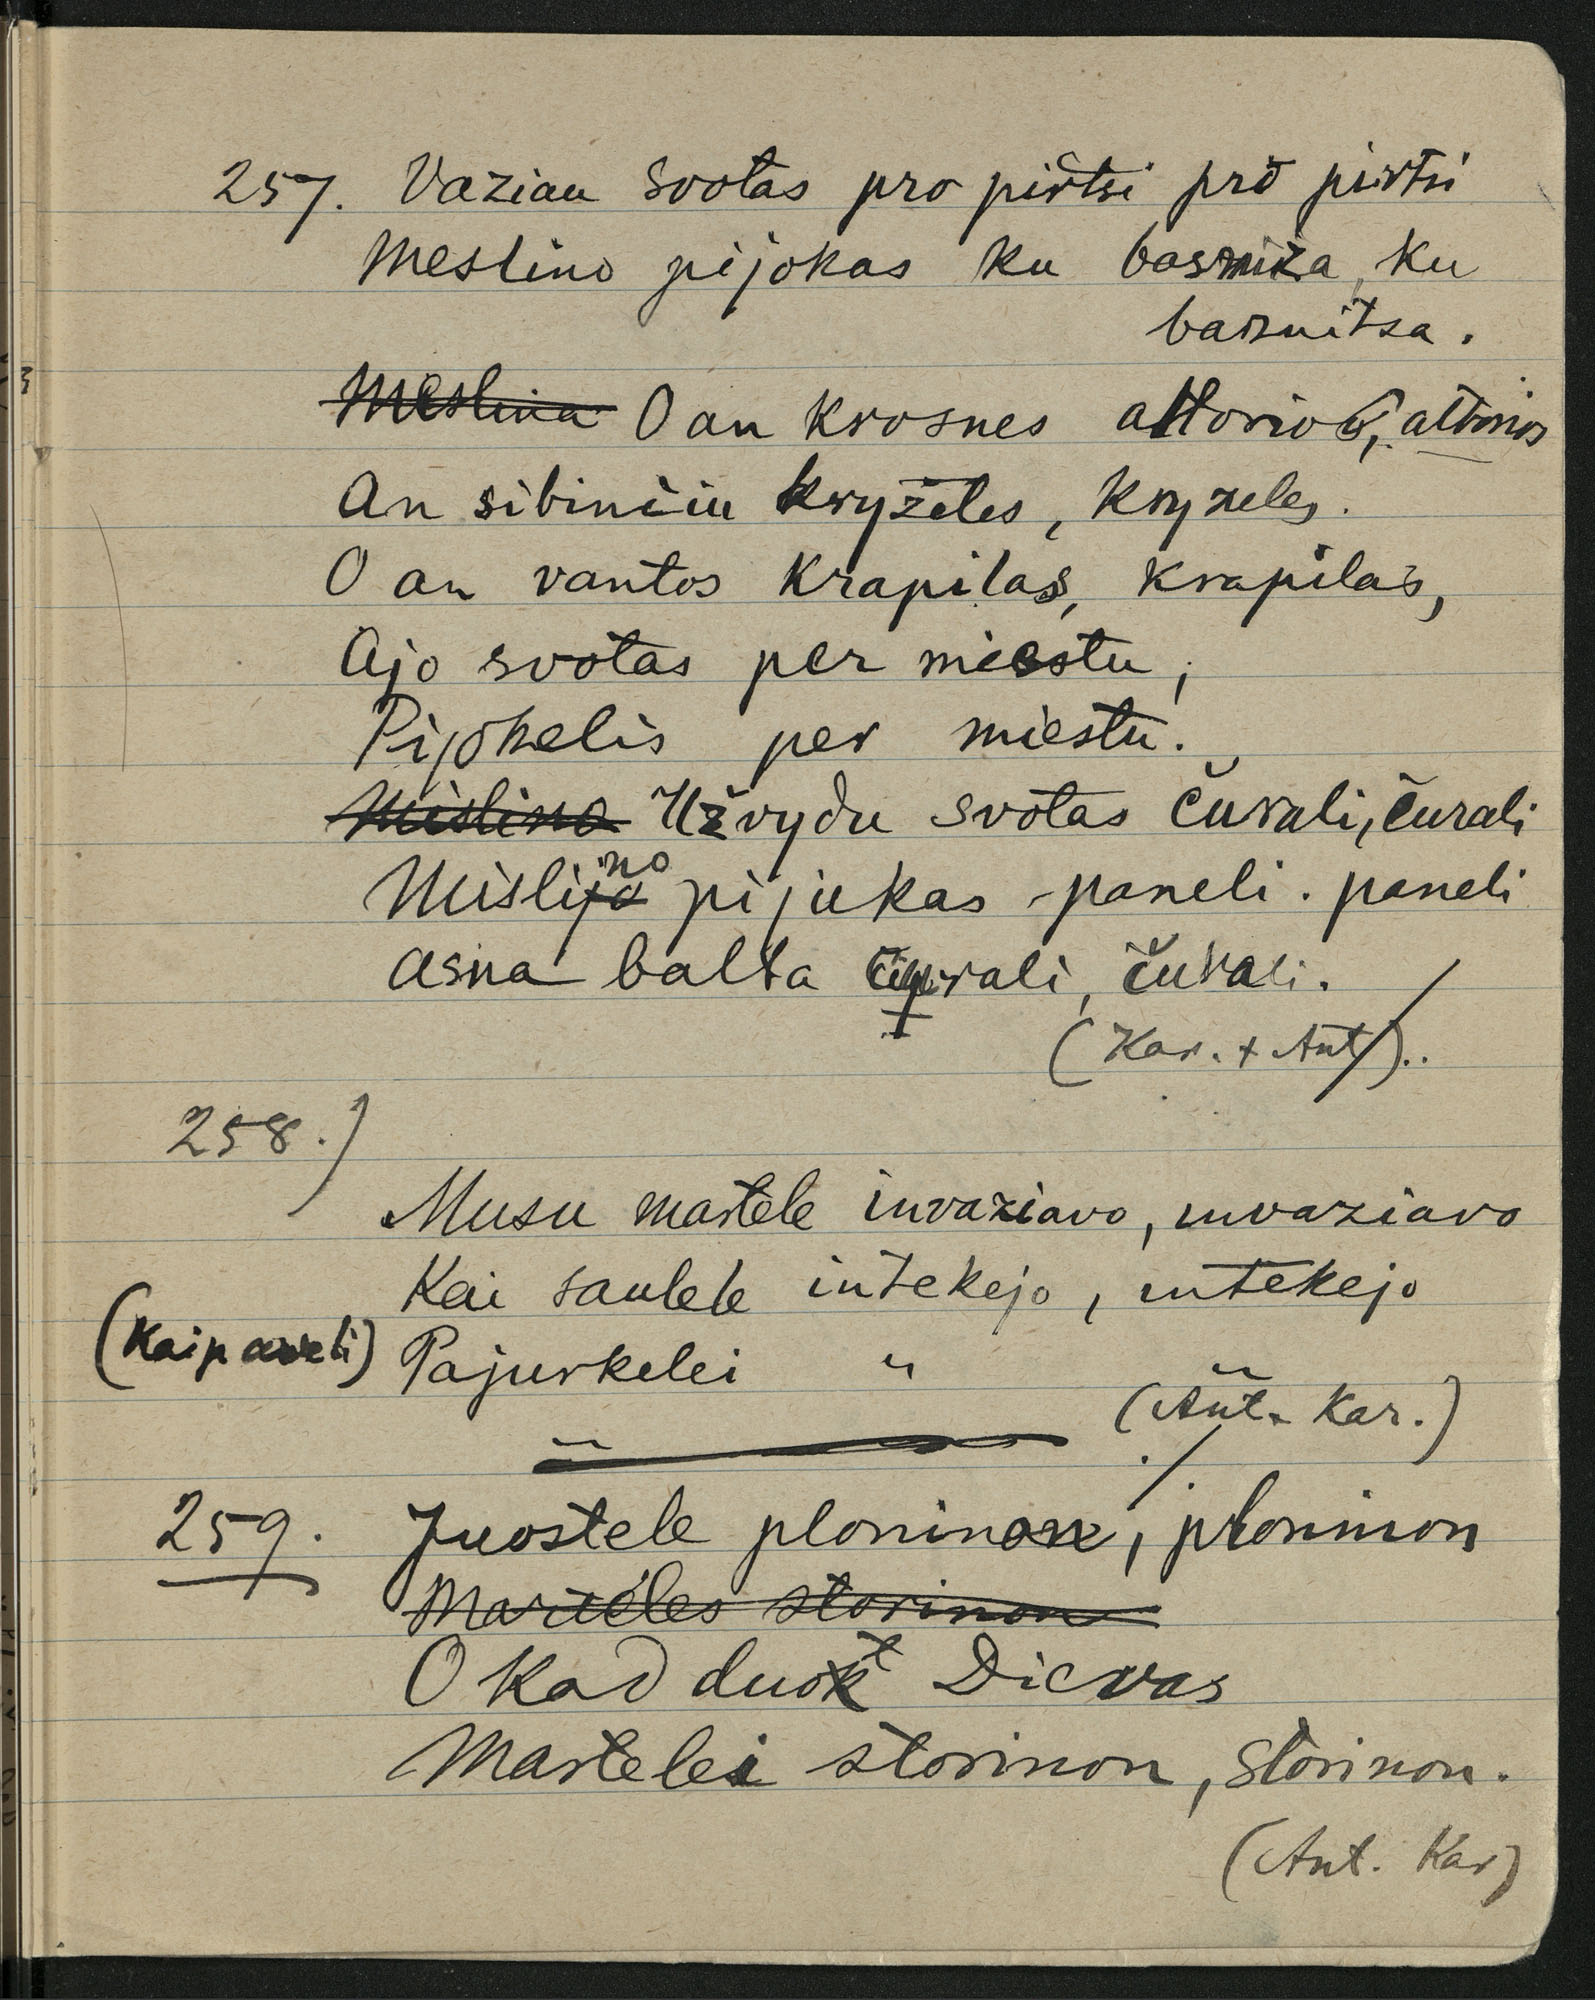 257. Vaziau svotas pro pirtsi pro pirtsi
Meslino pijokas ku basniza, ku
barnitsa.
Meslina O an krosnes altorios, altorios
An sibinčiu kryželes, kryzeles.
O an vantos krapilas, krapilas,
Ajo svotas per miestu,
Pijokelis per miestu.
Mislino Užvydu svotas čurali, čurali
Mislijno pijukas paneli. paneli
asna balta čurali, čurali.
(Kar. + Ant)..
258.)
Musu martele invaziavo, invaziavo
Kai saulele intekejo, intekejo
(Kaip aveli) Pajurkelei "
(Ant. Kar.)
259. Juostele ploninon, ploninon
Marteles storinon
O Kad duot Dievas
Martelei storinon, storinon.
(Ant. Kar)